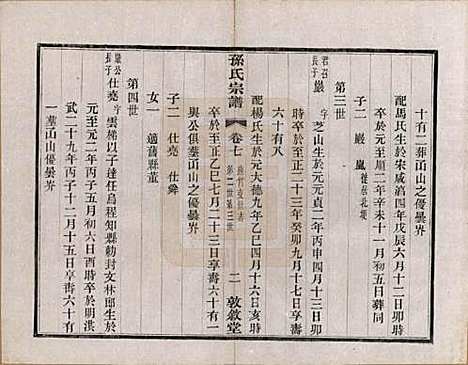 十有二葬山山之優曇岕
配馬氏生於宋咸淳四年戊辰六月十二日卯時
卒於元至順二年辛未十一月初五日葬同
子二 巖 嵐
第三世
君召長子
巖 字芝山生於元元貞二年丙申四月十三日卯
時卒於至正二十三年癸卯九月十七日享壽
六十有八
孫氏宗譜
卷七
第二世第三世
二
敦敘堂
配楊氏生於元大德九年乙巳四月十六日亥時
卒於至正乙巳七月二十三日享壽六十有一
與公俱葬山山之優曇岕
子二 仕堯 仕舜
女一 適蕭縣董
第四世
巖公長子
仕堯 字雲梯以子達任烏程知縣勅封文林郎生於
元至元二年丙子五月初六日酉時卒於明洪
武二十九年丙子十二月十五日享壽六十有
一葬山山優曇岕